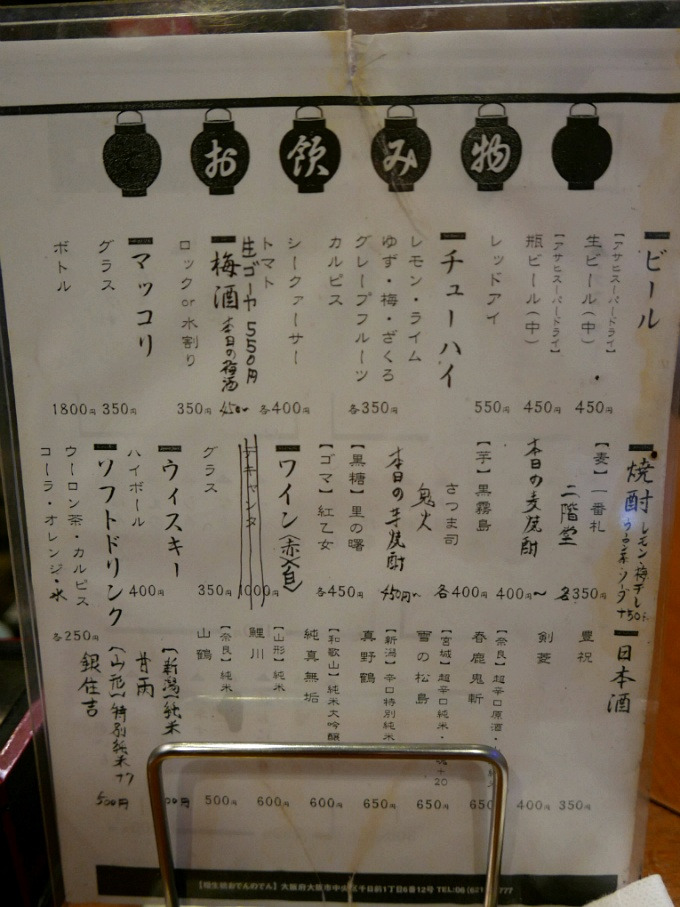 お飲み物
ビール
【アサヒスーパードライ】
生ビール(中) 450円
【アサヒスーパードライ】
瓶ビール(中) 450円
レッドアイ 550円
チューハイ
レモン・ライム
ゆず・梅・ざくろ
グレープフルーツ 各350円
カルピス
シークァーサー 各400円
トマト
生ゴーヤ 550円
梅酒 本日の梅酒 450〜
ロック or 水割り 350円
マッコリ
グラス 350円
ボトル 1800円
焼酎
【麦】一番札 各350円
二階堂
本日の麦焼酎 400円〜
【芋】黒霧島
さつま司 各400円
鬼火
本日の芋焼酎 450円〜
【黒糖】里の曙
【ゴマ】紅乙女 各450円
ワイン(赤・白)
デキャンタ 1000円
グラス 350円
ウィスキー
ハイボール 400円
ソフトドリンク
ウーロン茶・カルピス
コーラ・オレンジ・水 各250円
日本酒
豊祝 350円
剣菱 400円
【奈良】超辛口原酒・
春鹿鬼斬 650
【宮城】超辛口純米・ +20
雪の松島 650円
【新潟】辛口特別純米
真野鶴 650円
【和歌山】純米大吟醸
純真無垢 600円
【山形】純米
鯉川 600円
【奈良】純米
山鶴 500円
【新潟】純米
甘雨 00円
【山形】特別純米 +7
銀住吉 500円
【相生橋おでんのでん】大阪府大阪市中央区千日前1丁目6番12号 TEL:06 777